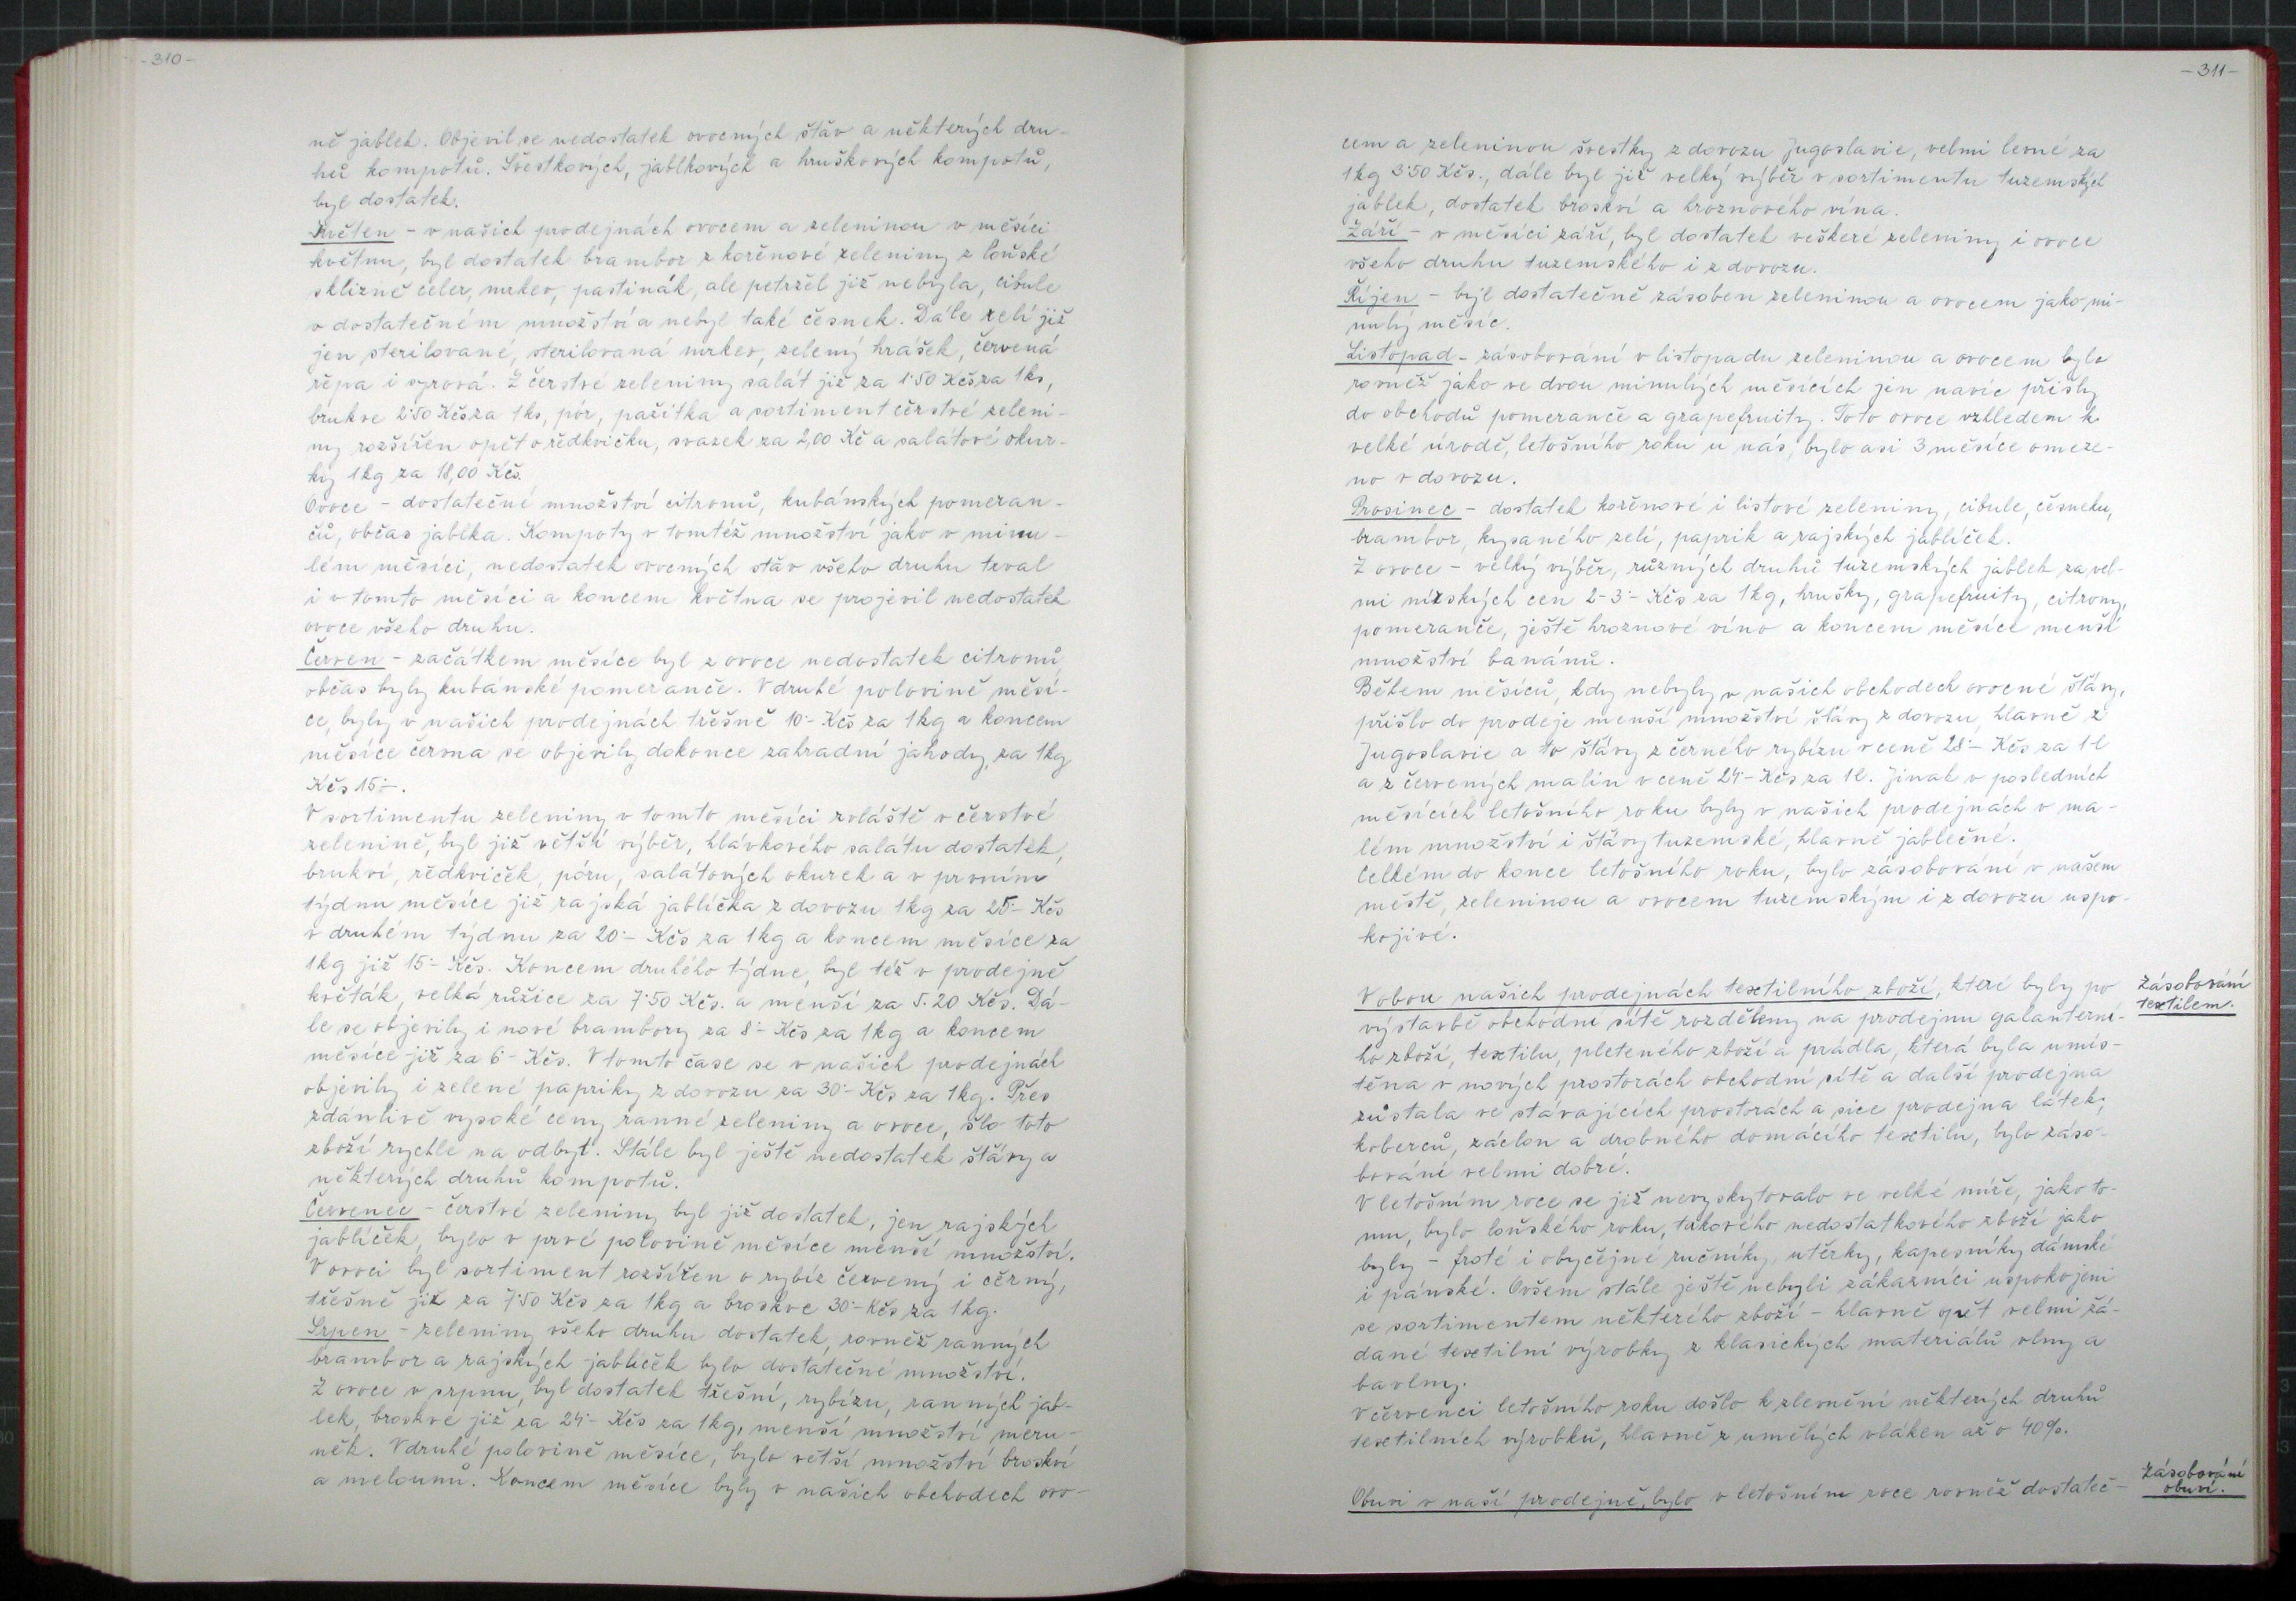 -310-
ně jablek. Objevil se nedostatek ovocných šťáv a některých dru-
hů kompotů. Švestkových, jablkových a hruškových kompotů,
byl dostatek.
Květen - v našich prodejnách ovocem a zeleninou v měsíci
květnu, byl dostatek brambor z kořenové zeleniny z loňské
sklizně celer, mrkev, pastinák, ale petržel již nebyla, cibule
v dostatečném množství a nebyl také česnek. Dále zelí již
jen sterilované, sterilovaná mrkev, zelený hrášek, červená
řepa i syrová. Z čerstvé zeleniny salát již za 1·50 Kčs za 1ks,
brukve 2·50 Kčs za 1 ks, pór, pažitka a sortiment čerstvé zeleni-
ny rozšířen opět o ředkvičku, svazek za 2,00 Kč a salátové okur-
ky 1 kg za 18,00 Kčs.
Ovoce - dostatečné množství citronů, kubánských pomeran-
čů, občas jablka. Kompoty v tomtéž množství jako v minu-
lém měsíci, nedostatek ovocných šťáv všeho druhu trval
i v tomto měsíci a koncem května se projevil nedostatek
ovoce všeho druhu.
Červen - začátkem měsíce byl z ovoce nedostatek citronů,
občas byly kubánské pomeranče. V druhé polovině měsí-
ce, byly v našich prodejnách třešně 10·- Kčs za 1 kg a koncem
měsíce června se objevily dokonce zahradní jahody, za 1kg
Kčs 15·-.
V sortimentu zeleniny v tomto měsíci zvláště v čerstvé
zelenině, byl již větší výběr, hlávkového salátu dostatek,
brukví, ředkviček, póru, salátových okurek a v prvním
týdnu měsíce již rajská jablíčka z dovozu 1kg za 25·- Kčs
v druhém týdnu za 20·- Kčs za 1 kg a koncem měsíce za
1kg již 15·- Kčs. Koncem druhého týdne, byl též v prodejně
květák, velká růžice za 7·50 Kčs. a menší za 5.20 Kčs. Dá-
le se objevily i nové brambory za 8·- Kčs za 1 kg a koncem
měsíce již za 6·- Kčs. V tomto čase se v našich prodejnách
objevily i zelené papriky z dovozu za 30·- Kčs za 1 kg. Přes
zdánlivě vysoké ceny ranné zeleniny a ovoce, šlo toto
zboží rychle na odbyt. Stále byl ještě nedostatek šťávy a
některých druhů kompotů.
Červenec - čerstvé zeleniny byl již dostatek, jen rajských
jablíček, bylo v prvé polovině měsíce menší množství.
V ovoci byl sortiment rozšířen o rybíz červený i černý,
třešně již za 7·50 Kčs za 1 kg a broskve 30·- Kčs za 1 kg.
Srpen - zeleniny všeho druhu dostatek, rovněž ranných
brambor a rajských jablíček bylo dostatečné množství.
Z ovoce v srpnu, byl dostatek třešní, rybízu, ranných jab-
lek, broskve již za 24·- Kčs za 1 kg, menší množství meru-
něk. V druhé polovině měsíce, bylo vetší množství broskví
a melounů. Koncem měsíce byly v našich obchodech ovo-
-311-
cem a zeleninou švestky z dovozu Jugoslavie, velmi levné za
1kg 3·50 Kčs., dále byl již velký výběr v sortimentu tuzemských
jablek, dostatek broskví a hroznového vína.
Září - v měsíci září, byl dostatek veškeré zeleniny i ovoce
všeho druhu tuzemského i z dovozu.
Říjen - byl dostatečně zásoben zeleninou a ovocem jako mi-
nulý měsíc.
Listopad - zásobování v listopadu zeleninou a ovocem bylo
rovněž jako ve dvou minulých měsících jen navíc přišly
do obchodů pomeranče a grapefruity. Toto ovoce vzhledem k
velké úrodě, letošního roku u nás, bylo asi 3 měsíce omeze-
no v dovozu.
Prosinec - dostatek kořenové i listové zeleniny, cibule, česneku,
brambor, kysaného zelí, paprik a rajských jablíček.
Z ovoce - velký výběr, různých druhů tuzemských jablek za vel-
mi nízských cen 2-3·- Kčs za 1 kg, hrušky, grapefruity, citrony,
pomeranče, ještě hroznové víno a koncem měsíce menší
množství banánů.
Během měsíců, kdy nebyly v našich obchodech ovocné šťávy,
přišlo do prodeje menší množství šťávy z dovozu, hlavně z
Jugoslavie a to šťávy z černého rybízu v ceně 28·- Kčs za 1 l
a z červených malin v ceně 24·- Kčs za 1l. Jinak v posledních
měsících letošního roku byly v našich prodejnách v ma-
lém množství i šťávy tuzemské, hlavně jablečné.
Celkém do konce letošního roku, bylo zásobování v našem
městě, zeleninou a ovocem tuzemským i z dovozu uspo-
kojivé.
V obou našich prodejnách textilního zboží, které byly po
Zásobování
textilem.
výstavbě obchodní sítě rozděleny na prodejnu galanterní-
ho zboží, textilu, pleteného zboží a prádla, která byla umís-
těna v nových prostorách obchodní sítě a další prodejna
zůstala ve stávajících prostorách a sice prodejna látek,
koberců, záclon a drobného domácího textilu, bylo záso-
bování velmi dobré.
V letošním roce se již nevyskytovalo ve velké míře, jako to-
mu, bylo loňského roku, takového nedostatkového zboží jako
byly - froté i obyčejné ručníky, utěrky, kapesníky dámské
i pánské. Ovšem stále ještě nebyli zákazníci uspokojeni
se sortimentem některého zboží - hlavně opět velmi žá-
dané textilní výrobky z klasických materiálů vlny a
bavlny.
V červenci letošního roku došlo k zlevnění některých druhů
textilních výrobků, hlavně z umělých vláken až o 40%.
Obuvi v naší prodejně, bylo v letošním roce rovněž dostateč-
Zásobování
obuví.